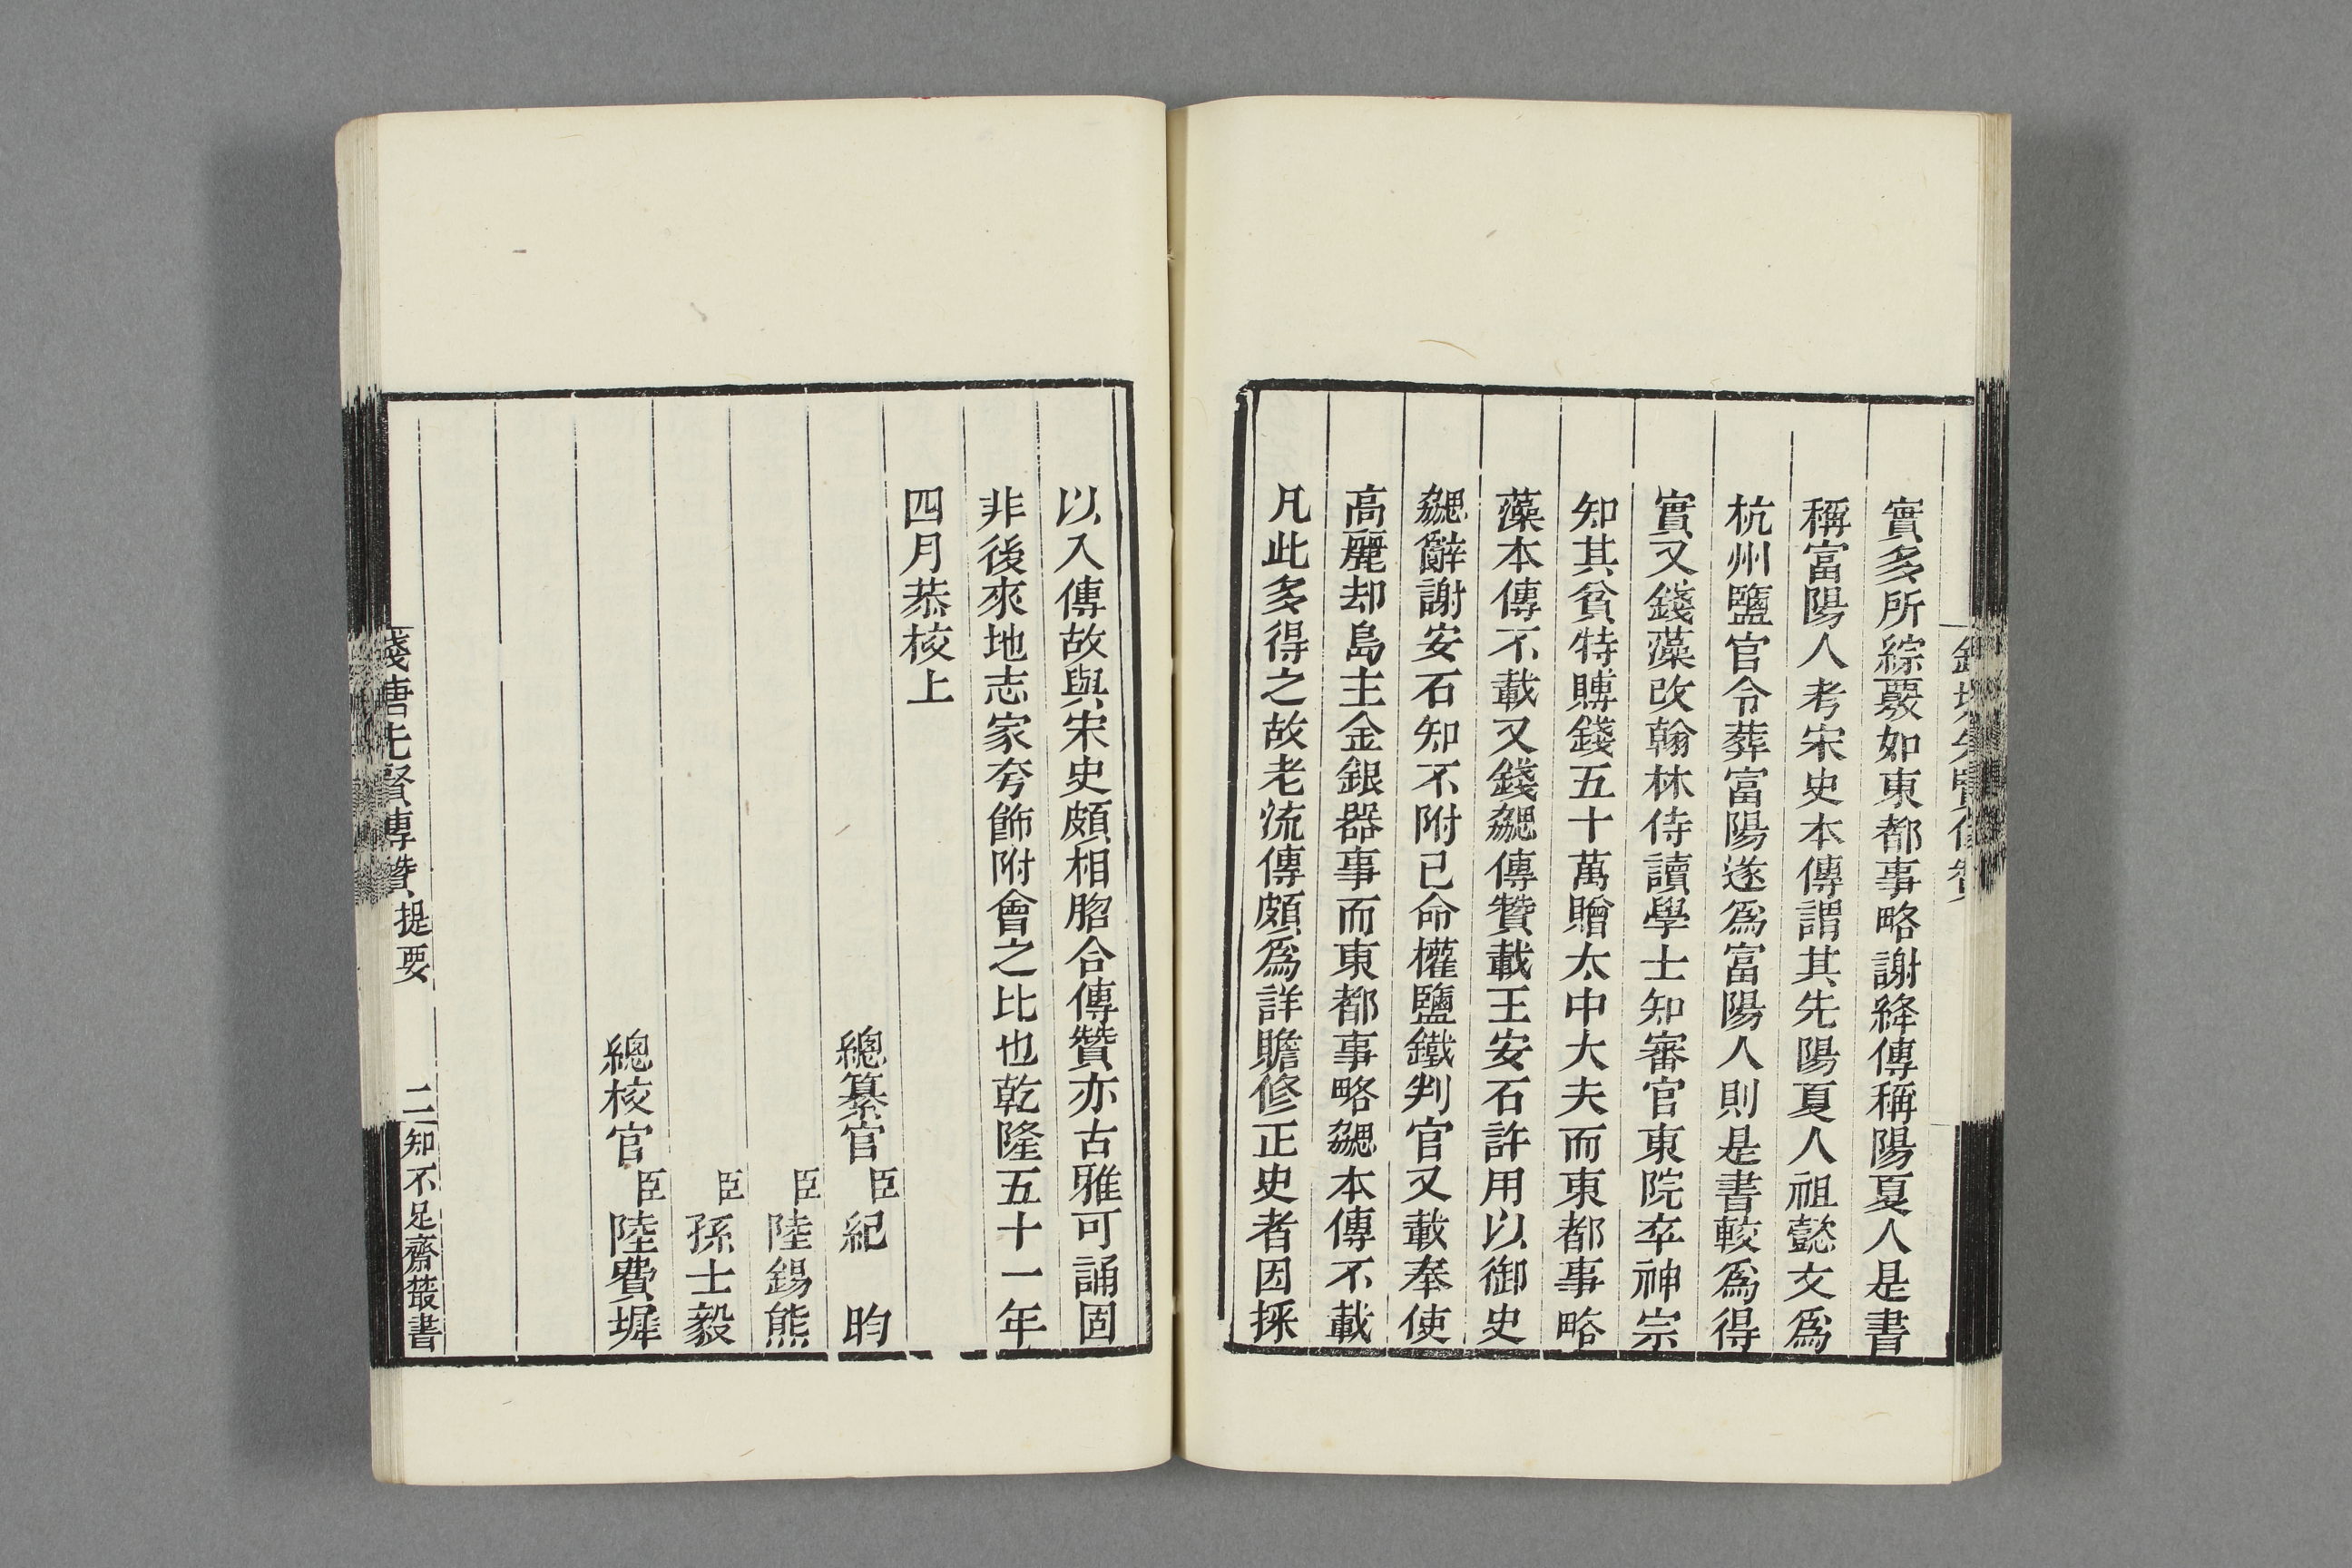 實多所綜覈如東都事略謝絳傳稱陽夏人是書
稱富陽人考宋史本傳謂其先陽夏人祖懿文爲
杭州鹽官令葬富陽遂爲富陽人則是書較爲得
實又錢藻改翰林侍讀學士知審官東院卒神宗
知其貧特賻錢五十萬贈太中大夫而東都事略
藻本傳不載又錢勰傳贊載王安石許用以御史
勰辭謝安石知不附已命權鹽鐵判官又載奉使
高麗却島主金銀器事而東都事略勰本傳不載
凡此多得之故老流傳頗爲詳贍修正史者因採
以入傳故與宋史頗相脗合傳贊亦古雅可誦固
非後來地志家夸飾附會之比也乾隆五十一年
四月恭校上
總纂官臣紀昀
臣陸錫熊
臣孫士毅
總校官臣陸費墀
錢唐先賢傳贊 提要 二 知不足齋叢書